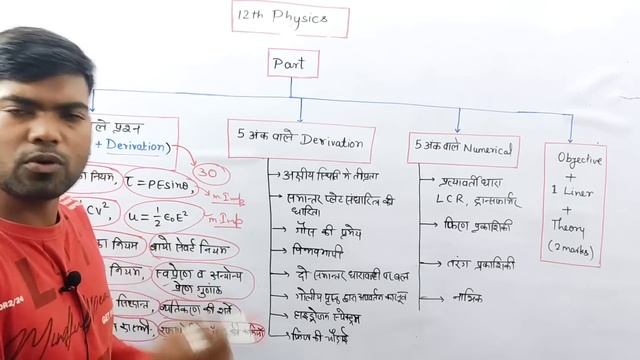 12th Physics
Part
ले प्रश्न
+ Derivation)
30
नियम, τ = PEsinθ,
m Imp
CV², u = 1/2 ε₀E²
m Imp
का नियम बायो सेवर्ट नियम
नियम, स्वप्रेरण व अन्योन्य
प्रेरण गुणांक
व्यतिकरण की शर्तें
5 अंक वाले Derivation
अक्षीय स्थिति में तीव्रता
समान्तर प्लेट संधारित्र की
धारिता
गॉस की प्रमेय
विभवमापी
दो समान्तर धारावाही पर बल
गोलीय पृष्ठ द्वारा अपवर्तन का सूत्र
हाइड्रोजन स्पेक्ट्रम
फ्रिंज की चौड़ाई
5 अंक वाले Numerical
प्रत्यावर्ती धारा
LCR, ट्रान्सफार्मर
किरण प्रकाशिकी
तरंग प्रकाशिकी
नाभिक
Objective
+
1 Liner
+
Theory
(2 marks)